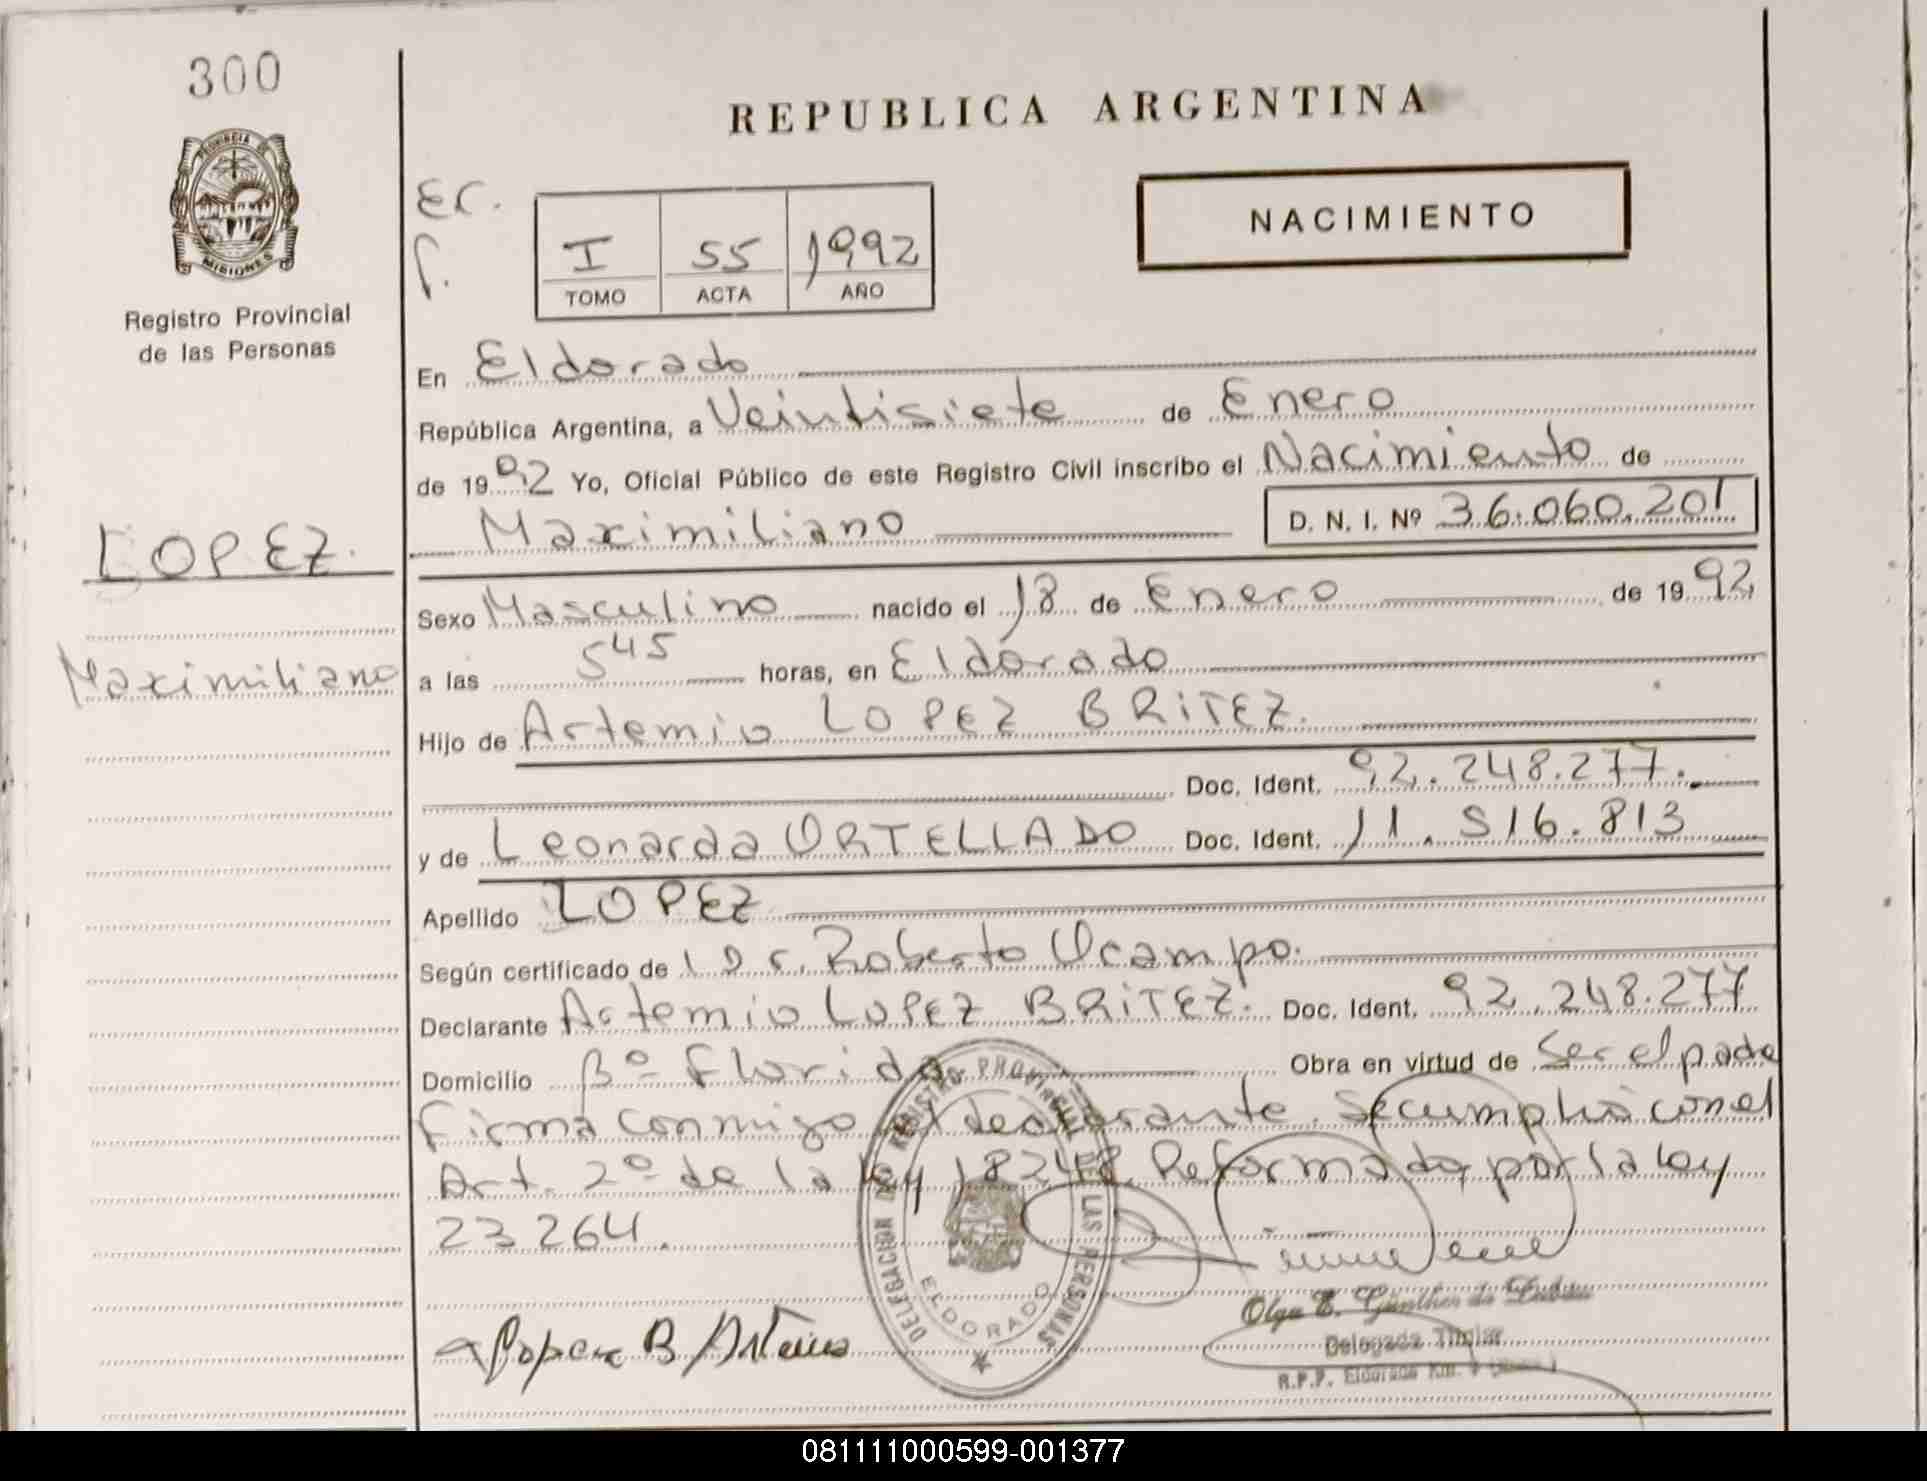 300
REPUBLICA ARGENTINA
PROVINCIA DE
MISIONES
Registro Provincial
de las Personas
Ec.
f.
NACIMIENTO
I 55 1992
TOMO ACTA AÑO
En Eldorado
República Argentina, a Veintisiete de Enero
de 1992 Yo, Oficial Público de este Registro Civil inscribo el Nacimiento de
Maximiliano D. N. I. Nº 36.060.201
LOPEZ.
Maximiliano
Sexo Masculino nacido el 18 de Enero de 1992
a las 5 45 horas, en Eldorado
Hijo de Artemio LOPEZ BRITEZ.
Doc. Ident. 92.248.277.
y de Leonarda ORTELLADO Doc. Ident. 11.516.813
Apellido LOPEZ
Según certificado de Dr. Roberto Ocampo.
Declarante Artemio LOPEZ BRITEZ. Doc. Ident. 92.248.277
Domicilio Bº Florida Obra en virtud de Ser el padre
Firma conmigo el declarante. Se cumplió con el
Art. 2º de la ley 18248. Reformada por la ley
23264.
DELEGACION DEL REGISTRO PROVINCIAL DE LAS PERSONAS
ELDORADO
Lopez B Artemio
Olga E. Günther de
Delegada Titular
R.P.P. Eldorado Km. 9
081111000599-001377